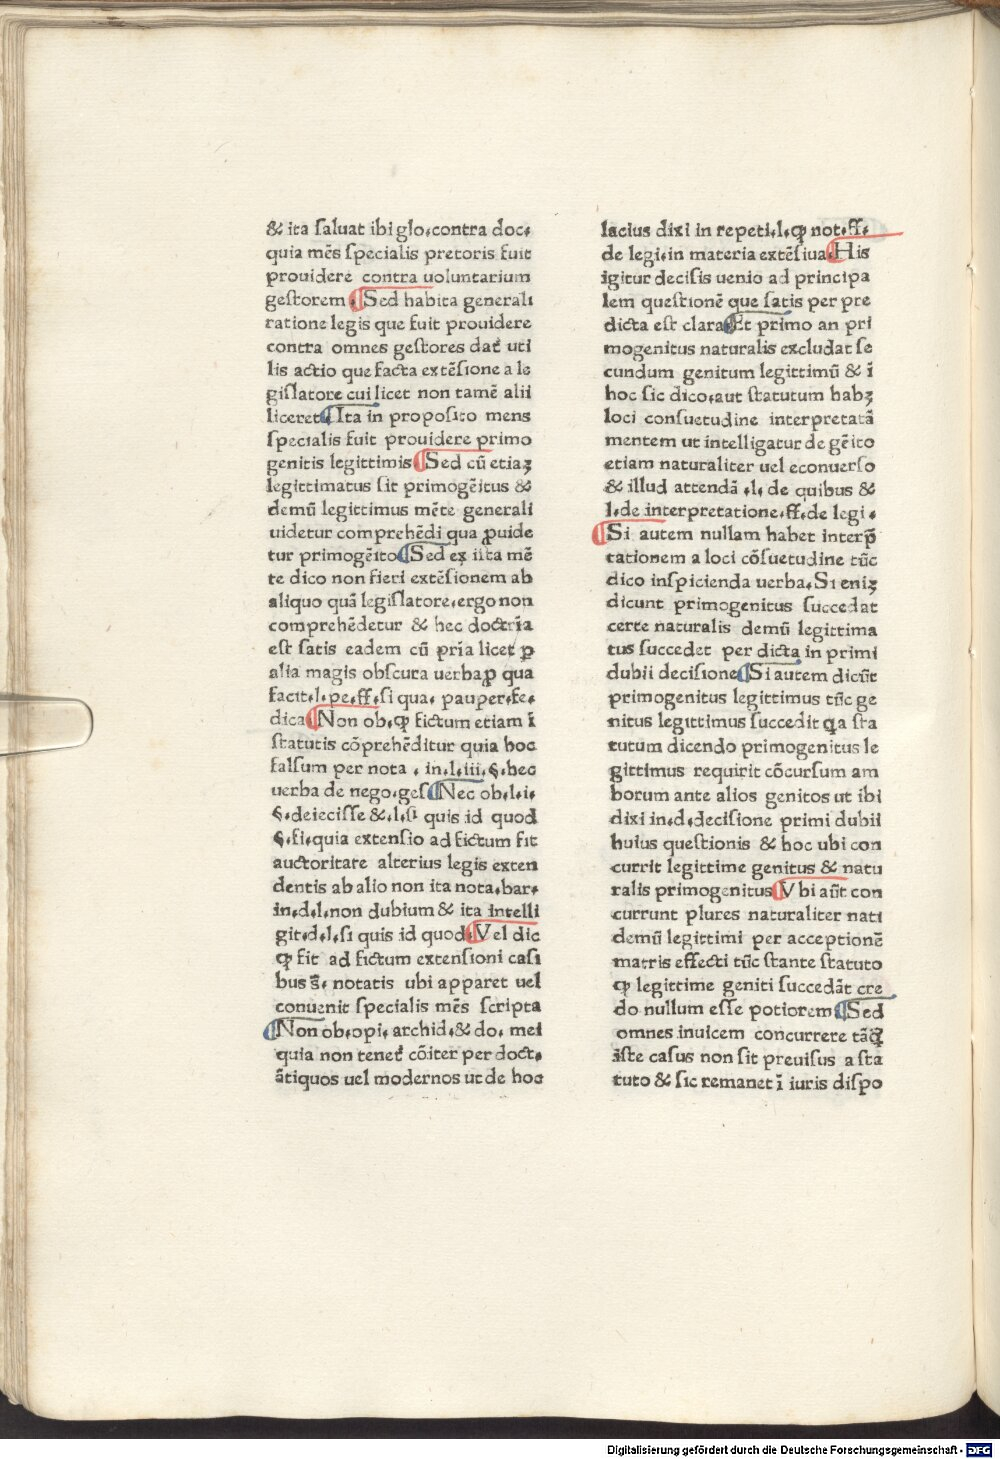 & ita ſaluat ibi glo.contra doc.
quia mēs ſpecialis pretoris fuit
prouidere contra uoluntarium
geſtorem. Sed habita generali
ratione legis que fuit prouidere
contra omnes geſtores dat᷑ uti
lis actio que facta extēſione a le
giſlatore cui licet non tamē alii
liceret. Ita in propoſito mens
ſpecialis fuit prouidere primo
genitis legittimis. Sed cū etiaꝫ
legittimatus ſit primogēitus &
demū legittimus mēte generali
uidetur comprehēdi qua ꝓuide
tur primogēito. Sed ex iſta mē
te dico non fieri extēſionem ab
aliquo quā legiſlatore.ergo non
comprehēdetur & hec doctrīa
eſt ſatis eadem cū pria licet ꝑ
alia magis obſcura uerbaꝑ qua
facit.l.pe.ff.ſi qua. pauper.fe.
dica. Non ob.ꝙ fictum etiam ī
ſtatutis cōprehēditur quia hoc
falſum per nota . in.l.iii.§.hec
uerba de nego.geſ. Nec ob.l.i.
§.deieciſſe &.l.ſi quis id quod
§.fi.quia extenſio ad fictum fit
auctoritate alterius legis exten
dentis ab alio non ita nota.bar.
in.d.l.non dubium & ita intelli
git.d.l.ſi quis id quod. Vel dic
ꝙ fit ad fictum extenſioni caſi
bus s̄. notatis ubi apparet uel
conuenit ſpecialis mēs ſcripta
Non ob.opi. archid.& do. mei
quia non tenet᷑ cōiter per doct.
ātiquos uel modernos ut de hoc
lacius dixi in repeti.l.ꝙ not.ff.
de legi.in materia extēſiua. His
igitur deciſis uenio ad principa
lem queſtionē que ſatis per pre
dicta eſt clara. Et primo an pri
mogenitus naturalis excludat ſe
cundum genitum legittimū & ī
hoc ſic dico.aut ſtatutum habꝫ
loci conſuetudine interpretatā
mentem ut intelligatur de gēito
etiam naturaliter uel econuerſo
& illud attendā .l. de quibus &
l.de interpretatione.ff.de legi.
Si autem nullam habet interp̄
tationem a loci cōſuetudine tūc
dico inſpicienda uerba. Si eniꝫ
dicunt primogenitus ſuccedat
certe naturalis demū legittima
tus ſuccedet per dicta in primi
dubii deciſione. Si autem dicūt
primogenitus legittimus tūc ge
nitus legittimus ſuccedit qa ſta
tutum dicendo primogenitus le
gittimus requirit cōcurſum am
borum ante alios genitos ut ibi
dixi in.d.deciſione primi dubii
huius queſtionis & hoc ubi con
currit legittime genitus & natu
ralis primogenitus. Vbi aūt con
currunt plures naturaliter nati
demū legittimi per acceptionē
matris effecti tūc ſtante ſtatuto
ꝙ legittime geniti ſuccedāt cre
do nullum eſſe potiorem. Sed
omnes inuicem concurrere tāꝙ̄
iſte caſus non ſit preuiſus a ſta
tuto & ſic remanet ī iuris diſpo
Digitalisierung gefördert durch die Deutsche Forschungsgemeinschaft - DFG